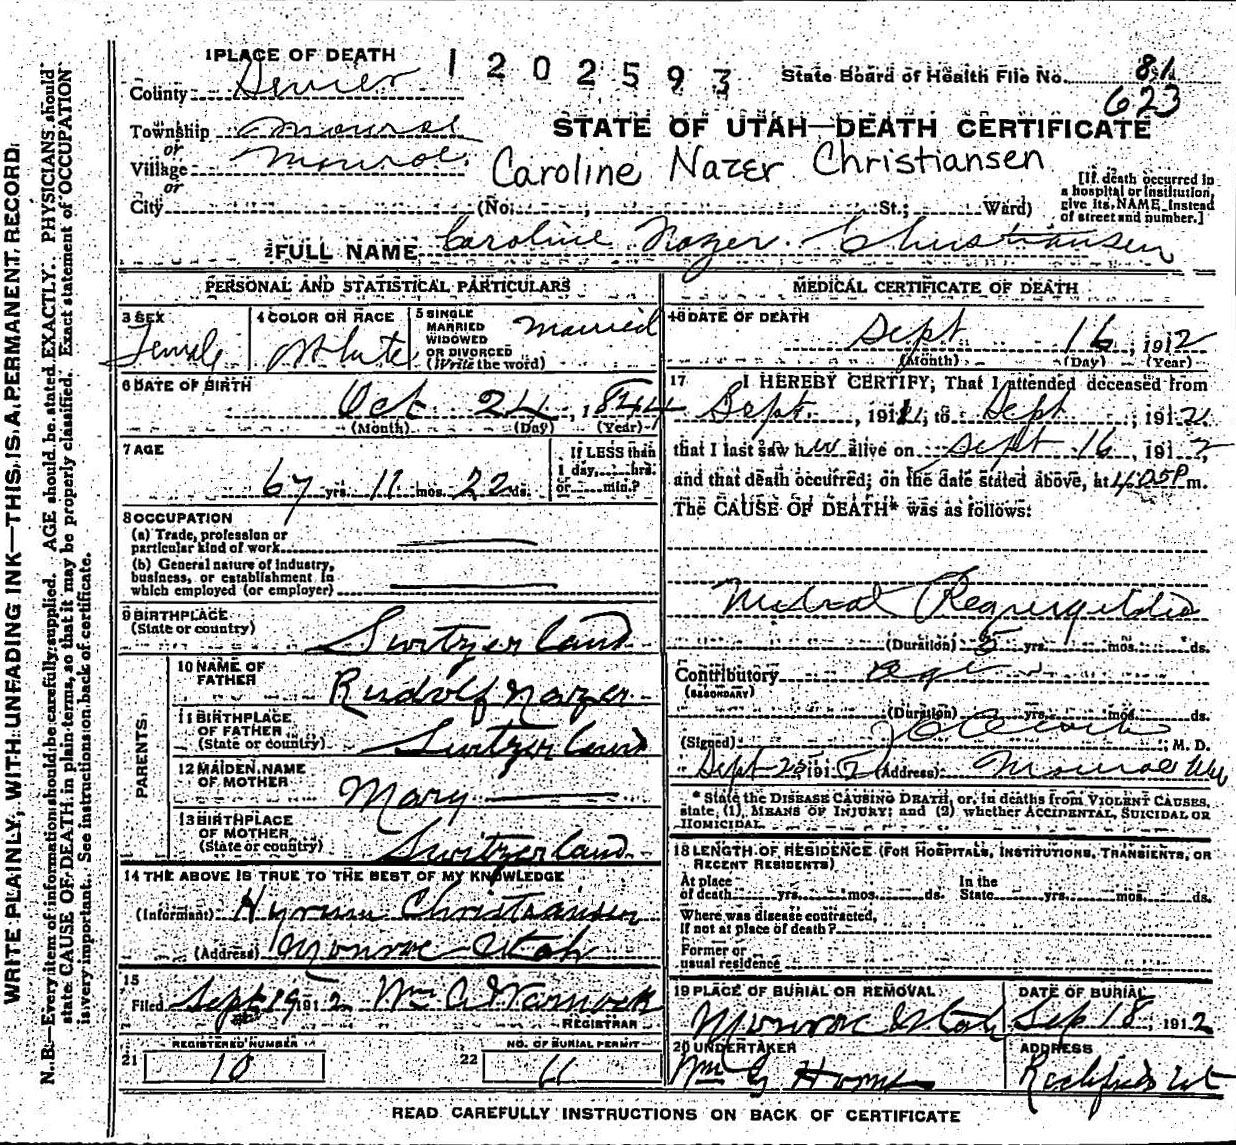 1 PLACE OF DEATH
1202593
State Board of Health File No. 81
623
County Sevier
Township Monroe
or
Village Monroe.
or
City (No. , St.; Ward)
STATE OF UTAH—DEATH CERTIFICATE
Caroline Nazer Christiansen
[If death occurred in
a hospital or institution,
give its NAME instead
of street and number.]
2 FULL NAME Caroline Nazer Christiansen
PERSONAL AND STATISTICAL PARTICULARS
3 SEX
Female
4 COLOR OR RACE
White
5 SINGLE
MARRIED
WIDOWED
OR DIVORCED
(Write the word)
Married
6 DATE OF BIRTH
Oct 24, 1844
(Month) (Day) (Year)
7 AGE
67 yrs. 11 mos. 22 ds.
If LESS than
1 day, hrs.
or min.?
8 OCCUPATION
(a) Trade, profession or
particular kind of work
(b) General nature of industry,
business, or establishment in
which employed (or employer)
9 BIRTHPLACE
(State or country)
Switzerland
PARENTS.
10 NAME OF
FATHER
Rudolf Nazer
11 BIRTHPLACE
OF FATHER
(State or country)
Switzerland
12 MAIDEN NAME
OF MOTHER
Mary
13 BIRTHPLACE
OF MOTHER
(State or country)
Switzerland
14 THE ABOVE IS TRUE TO THE BEST OF MY KNOWLEDGE
(Informant) Hyrum Christiansen
(Address) Monroe Utah
15
Filed Sept 19 1912 Wm A Warnock
REGISTRAR
21 REGISTERED NUMBER
10
22 NO. OF BURIAL PERMIT
MEDICAL CERTIFICATE OF DEATH
16 DATE OF DEATH
Sept 16, 1912
(Month) (Day) (Year)
17 I HEREBY CERTIFY, That I attended deceased from
Sept. , 191 , to Sept , 1912
that I last saw her alive on Sept 16, 1912,
and that death occurred, on the date stated above, at 4:05 P m.
The CAUSE OF DEATH* was as follows:
Mitral Regurgitation
(Duration) 5 yrs. mos. ds.
Contributory age
(SECONDARY)
(Duration) yrs. mos. ds.
(Signed) M. D.
Sept 191 2 (Address) Monroe
* State the DISEASE CAUSING DEATH, or, in deaths from VIOLENT CAUSES,
state (1) MEANS OF INJURY; and (2) whether ACCIDENTAL, SUICIDAL OR
HOMICIDAL.
18 LENGTH OF RESIDENCE (FOR HOSPITALS, INSTITUTIONS, TRANSIENTS, OR
RECENT RESIDENTS)
At place
of death yrs. mos. ds.
In the
State yrs. mos. ds.
Where was disease contracted,
if not at place of death?
Former or
usual residence
19 PLACE OF BURIAL OR REMOVAL
Monroe Utah
DATE OF BURIAL
Sep 18, 1912
20 UNDERTAKER
Wm G
ADDRESS
Richfield Ut
READ CAREFULLY INSTRUCTIONS ON BACK OF CERTIFICATE
WRITE PLAINLY, WITH UNFADING INK—THIS IS A PERMANENT RECORD.
N. B.—Every item of information should be carefully supplied. AGE should be stated EXACTLY. PHYSICIANS should
state CAUSE OF DEATH in plain terms, so that it may be properly classified. Exact statement of OCCUPATION
is very important. See instructions on back of certificate.